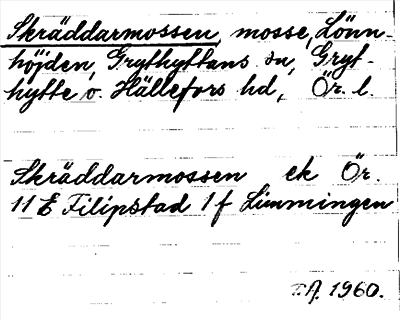 Skräddarmossen, mosse, Lönn-
höjden, Grythyttans sn, Gryt-
hytte o. Hällefors hd, Ör. l.
Skräddarmossen ek Ör.
11 E Filipstad 1 f Limmingen
T.A. 1960.